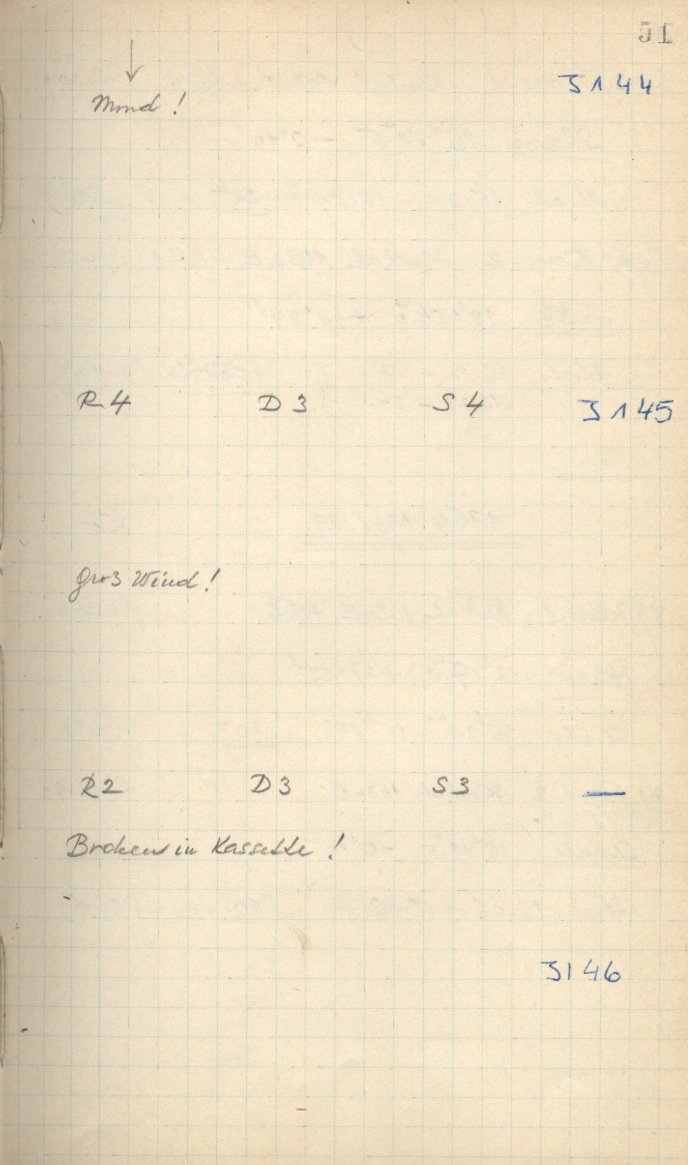 51
3144
↓
Mond!
R4 D3 S4 3145
groß Wind!
R2 D3 S3 —
Broken in Kassette!
3146